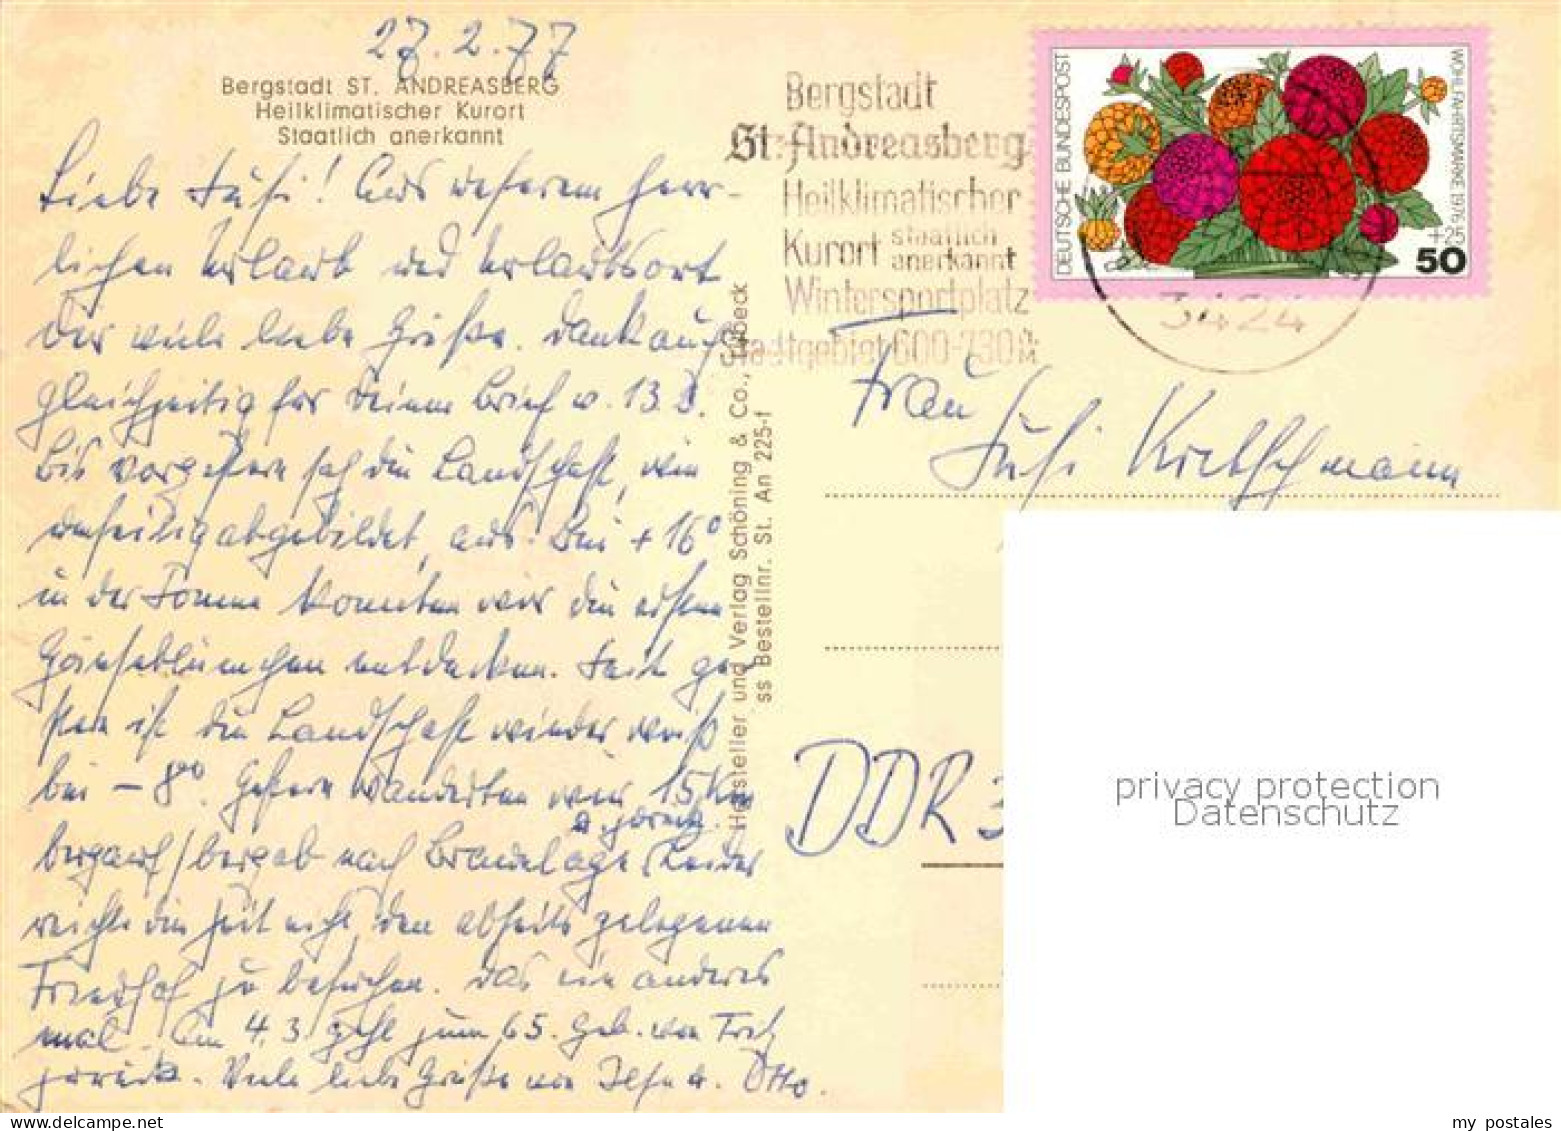 27.2.77
Bergstadt ST. ANDREASBERG
Heilklimatischer Kurort
Staatlich anerkannt
Liebe Susi! Aus unserem herr-
lichen Urlaub und Urlaubsort
Dir viele liebe Grüße. Dank auch
gleichzeitig für Deinen Brief v. 13.2.
Bis vorgestern sah die Landschaft, wie
umseitig abgebildet, aus. Bei + 16°
in der Sonne konnten wir die ersten
Gänseblümchen entdecken. Seit ge-
stern ist die Landschaft wieder weiß
bei – 8°. Gestern wanderten wir 15 km
bergauf/bergab nach Braunlage u. zurück. Leider
reichte die Zeit nicht, den abseits gelegenen
Friedhof zu besuchen. Das ein anderes
mal. Am 4.3. geht zum 65. Geb. von
zurück. Viele liebe Grüße von Ilse u. Otto.
Hersteller und Verlag Schöning & Co., Lübeck
ss Bestellnr. St. An 225-f
Bergstadt
St. Andreasberg
Heilklimatischer
Kurort staatlich anerkannt
Wintersportplatz
Stadtgebiet 600-730 ü. M
3424
DEUTSCHE BUNDESPOST
WOHLFAHRTSMARKE 1976
+25
50
Frau
Susi Kretschmann
DDR 3
privacy protection
Datenschutz
my postales